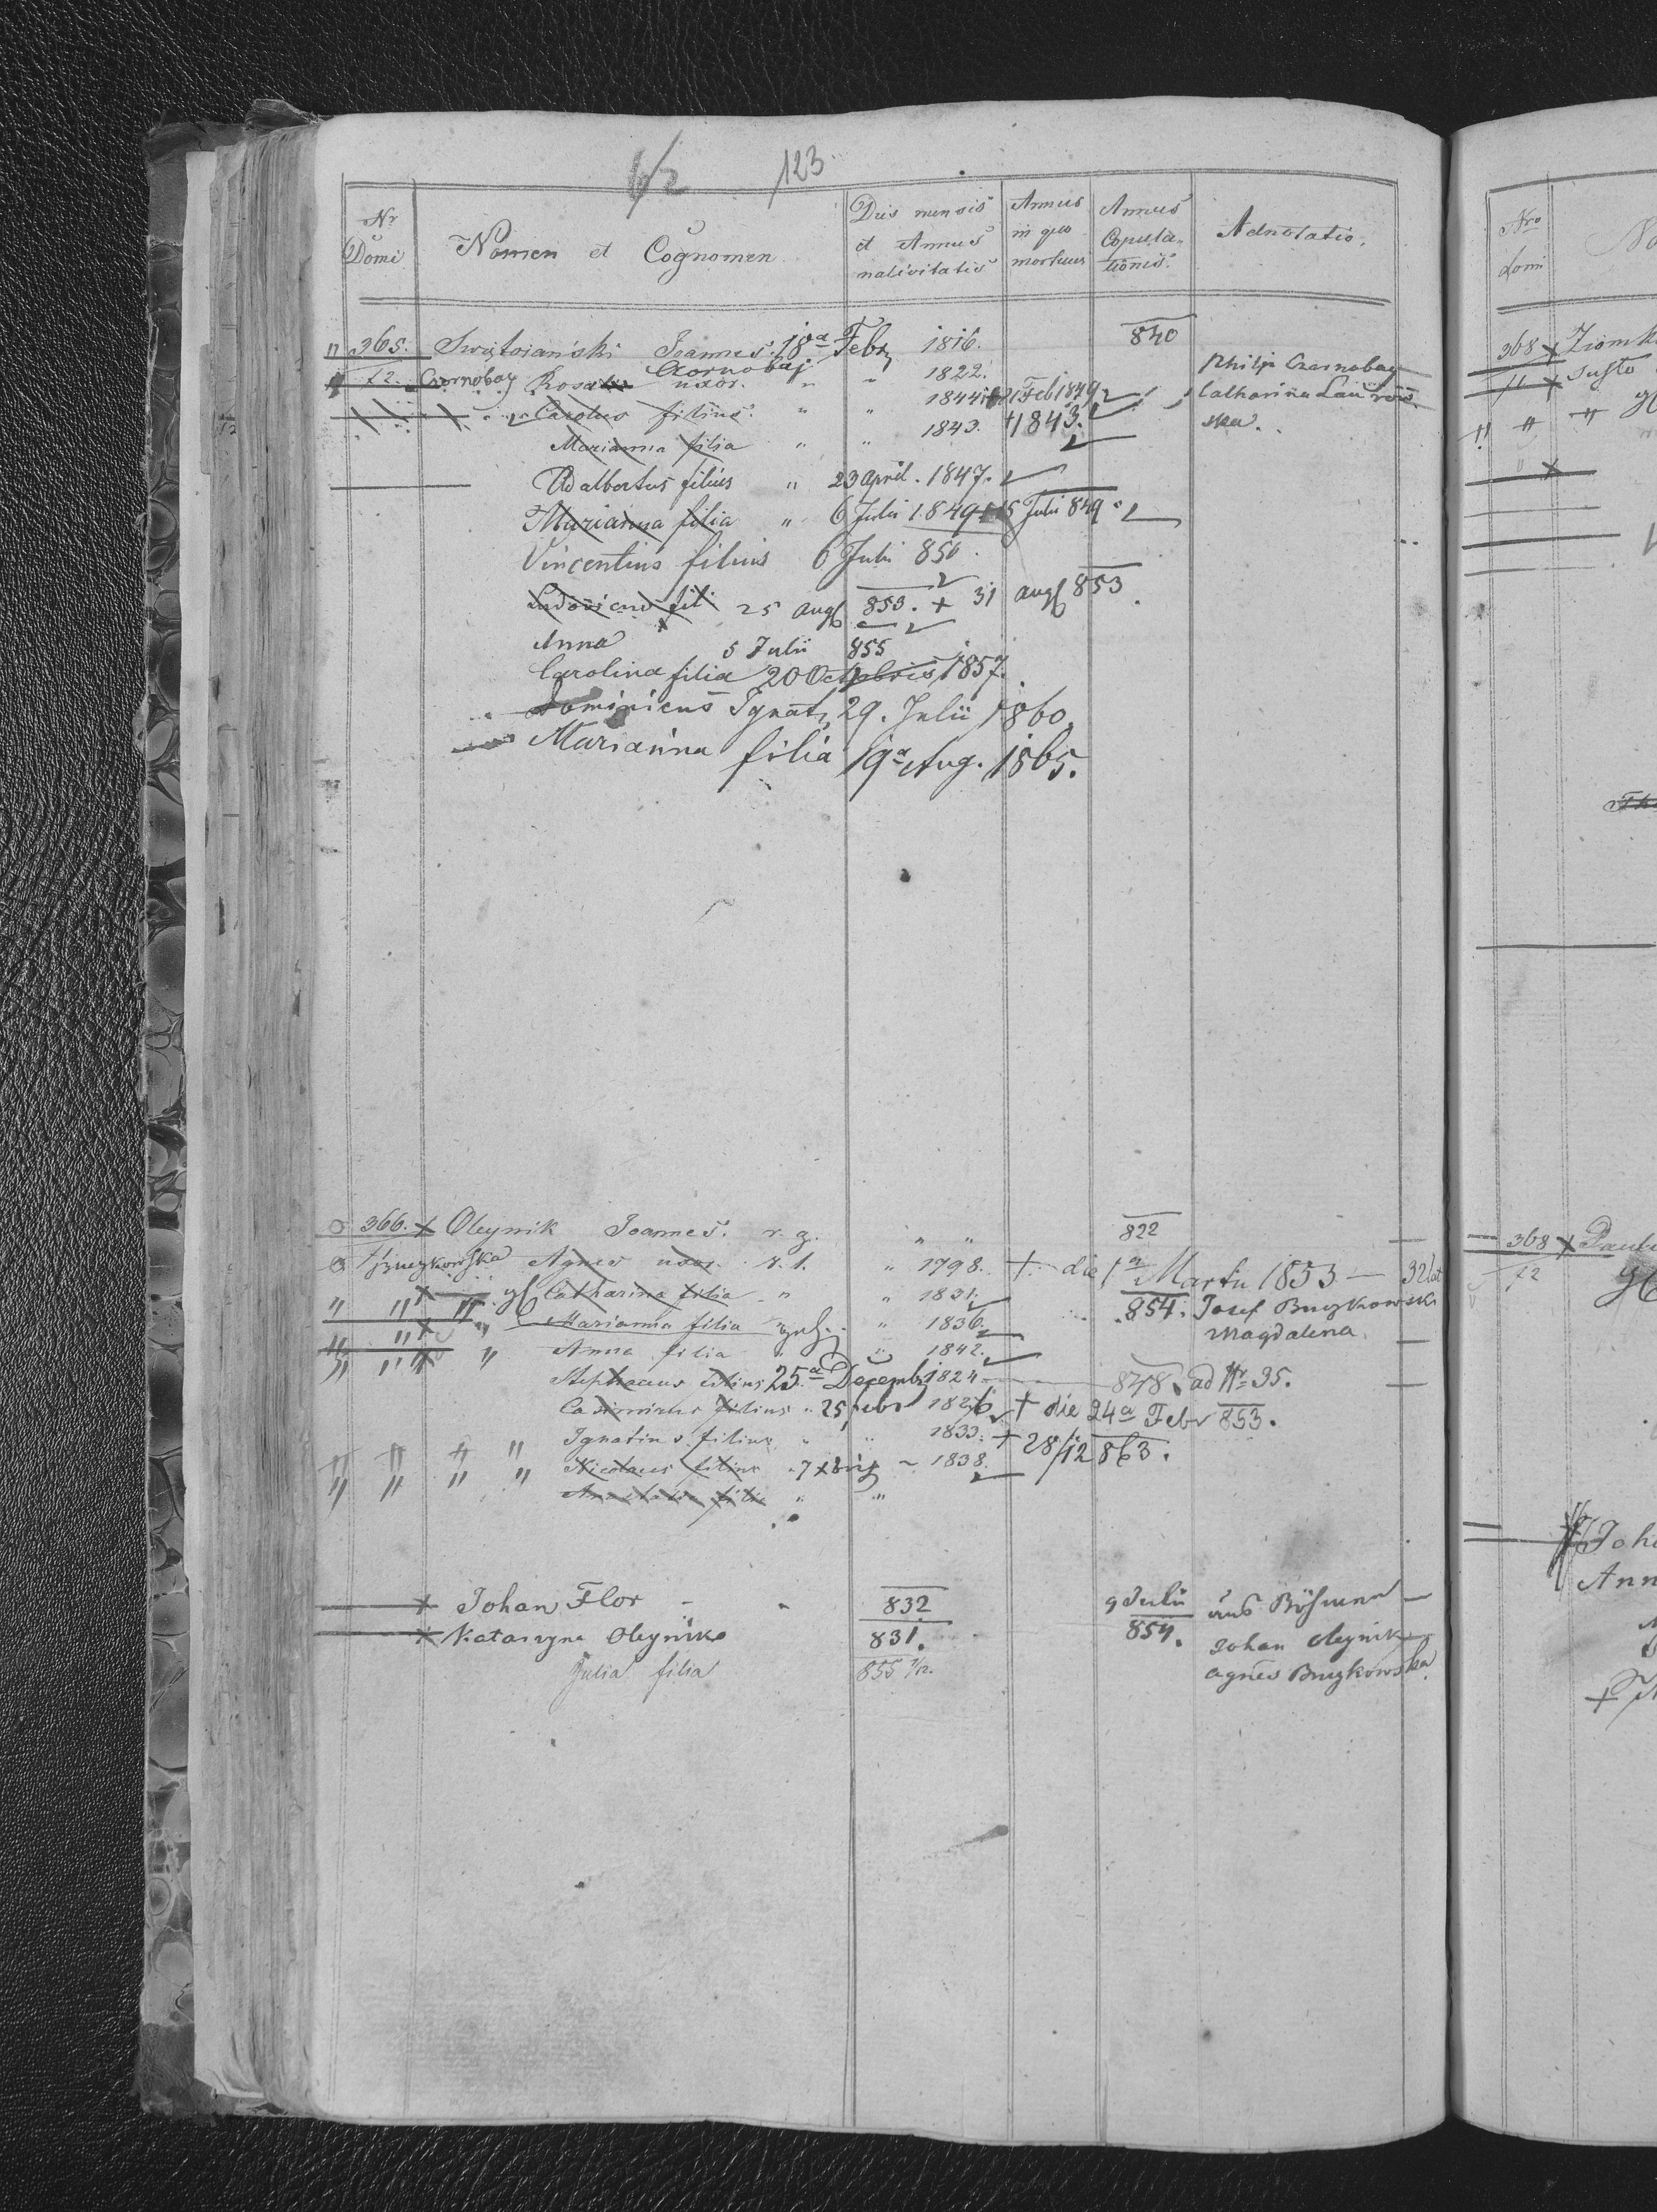 123
Nr Domi
Nomen et Cognomen
Dies mensis et Annus nativitatis
Annus in quo mortuus
Annus Copulationis
Adnotatio
365. Swiętoiański Joannes. 18a Febr 1816. 840
72. Czornobay Rosalia Czornobaj uxor. " " 1822. Philip Czarnobay
Carolus filius. " " 1844 21 Feb 1849 Catharina Laurow
Marianna filia " " 1843. + 1843. ska.
Adalbertus filius " 23 April. 1847.
Marianna filia " 6 Julii 1849 + 15 Julii 849
Vincentius filius 6 Juli 850.
Ludovicus fil 25 Aug 853. + 31 aug 853
Anna 5 Julii 855
Carolina filia 20 Octobris 1857.
Dominicus Ignatz 29. Julii 1860
Marianna filia 19a Aug. 1865.
366. Oleynik Joannes. r. g. " " 822
Bruzkowska Agnes uxor r. l. " 1798. + die 1a Martii 1853 — 32 lat
gl Catharina filia " " 1831. 854. Josef Bruzkowski
" Marianna filia " 1836. Magdalena
" Anna filia " " 1842.
Stephanus filius 25a Decemb 1824 848 ad Nr 35.
Casimirus filius " 25 febr 1826 + die 24a Febr 853.
Ignatius filius " " 1833. + 28/12 863.
" " " " Nicolaus filius 7 xbris 1838.
" " " " Anastasia filia " "
Johan Flor 832 9 Julii aus Böhmen
Kataryna Oleynika 831. 854. Johan Oleynik
Julia filia 855 Agnes Bruzkowska